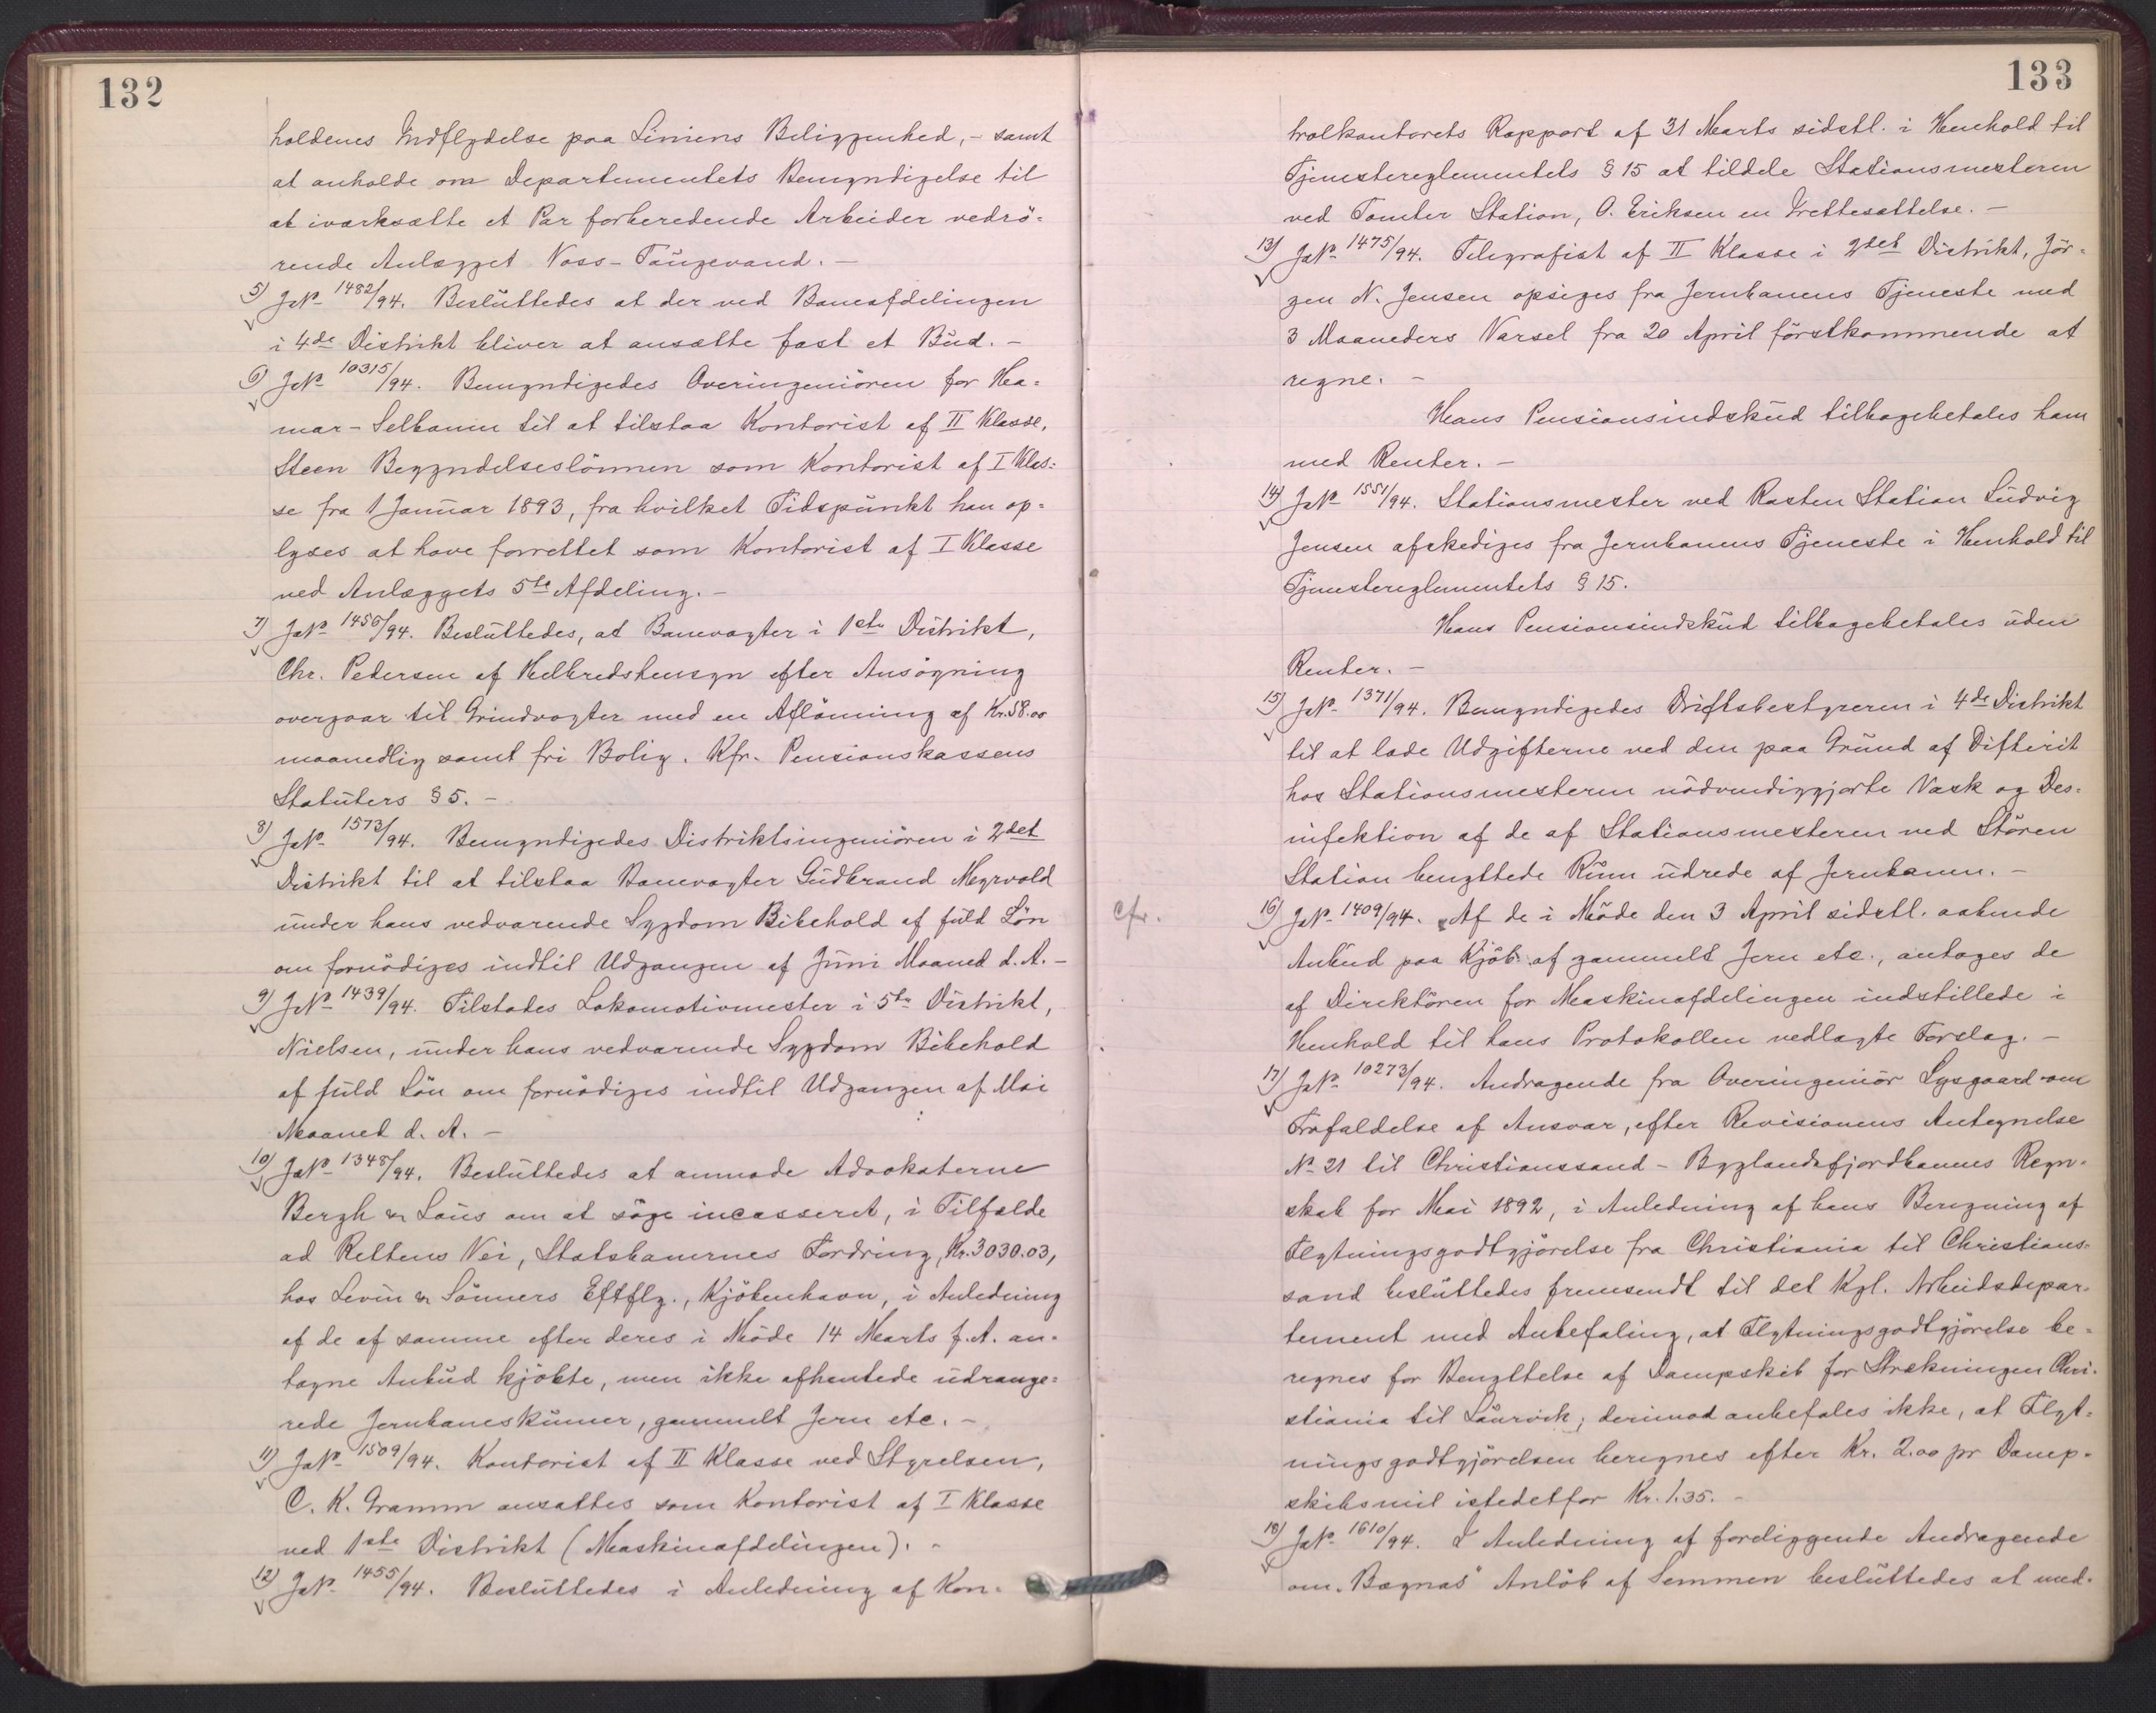 132
holdenes Indflydelse paa Liniens Beliggenhed, - samt
at anholde om Departementets Bemyndigelse til
at iværksætte et Par forberedende Arbeider vedrö=
rende Anlægget Voss-Taugevand. -
5) JNo 1482/94. Besluttedes at der ved Baneafdelingen
i 4de Distrikt bliver at ansætte fast et Bud. -
6) JNo 10315/94. Bemyndigedes Overingeniören for Ha=
mar-Selbanen til at tilstaa Kontorist af II Klasse,
Steen Begyndelseslönnen som Kontorist af I Klas=
se fra 1 Januar 1893, fra hvilket Tidspunkt han op=
lyses at have forrettet som Kontorist af I Klasse
ved Anlæggets 5te Afdeling. -
7) JNo 1456/94. Besluttedes, at Banevogter i 1ste Distrikt,
Chr. Pedersen af Helbredshensyn efter Ansögning
overgaar til Grindvogter med en Aflönning af Kr. 58.00
maanedlig samt fri Bolig. Kfr. Pensionskassens
Statuters § 5. -
8) JNo 1573/94. Bemyndigedes Distriktsingeniören i 2det
Distrikt til at tilstaa Banevogter Gudbrand Myrvold
under hans vedvarende Sygdom Bibehold af fuld Lön
om fornödiges indtil Udgangen af Juni Maaned d. A. -
9) JNo 1439/94. Tilstodes Lokomotivmester i 5te Distrikt,
Nielsen, under hans vedvarende Sygdom Bibehold
af fuld Lön om fornödiges indtil Udgangen af Mai
Maaned d. A. -
10) JNo 1348/94. Besluttedes at anmode Advokaterne
Bergh & Lous om at söge incasseret, i Tilfælde
ad Rettens Vei, Statsbanernes Fordring, Kr. 3030.03,
hos Levin & Sönners Eftflg., Kjöbenhavn, i Anledning
af de af samme efter deres i Möde 14 Marts f. A. an=
tagne Anbud kjöbte, men ikke afhentede udrange=
rede Jernbaneskinner, gammelt Jern etc. -
11) JNo 1509/94. Kontorist af II Klasse ved Styrelsen,
C. K. Gramm ansattes som Kontorist af I Klasse
ved 1ste Distrikt (Maskinafdelingen). -
12) JNo 1455/94. Besluttedes i Anledning af Kon=
133
trolkontorets Rapport af 31 Marts sidstl. i Henhold til
Tjenestereglementets § 15 at tildele Stationsmesteren
ved Tomter Station, O. Eriksen en Irettesættelse. -
13) JNo 1475/94. Telegrafist af II Klasse i 2det Distrikt, Jör=
gen N. Jensen opsiges fra Jernbanens Tjeneste med
3 Maaneders Varsel fra 20 April förstkommende at
regne. -
Hans Pensionsindskud tilbagebetales ham
med Renter. -
14) JNo 1551/94. Stationsmester ved Rasten Station Ludvig
Jensen afskediges fra Jernbanens Tjeneste i Henhold til
Tjenestereglementets § 15.
Hans Pensionsindskud tilbagebetales uden
Renter. -
15) JNo 1371/94. Bemyndigedes Driftsbestyreren i 4de Distrikt
til at lade Udgifterne ved den paa Grund af Difterit
hos Stationsmesteren nödvendiggjorte Vask og Des=
infektion af de af Stationsmesteren ved Stören
Station benyttede Rum udrede af Jernbanen. -
cfr.
16) JNo 1409/94. Af de i Möde den 3 April sidstl. aabnede
Anbud paa Kjöb af gammelt Jern etc., antages de
af Direktören for Maskinafdelingen indstillede i
Henhold til hans Protokollen vedlagte Forslag. -
17) JNo 10273/94. Andragende fra Overingeniör Lysgaard om
Frafaldelse af Ansvar, efter Revisionens Antegnelse
No 21 til Christianssand-Byglandsfjordbanens Regn=
skab for Mai 1892, i Anledning af hans Beregning af
Flytningsgodtgjörelse fra Christiania til Christians=
sand besluttedes fremsendt til det Kgl. Arbeidsdepar=
tement med Anbefaling, at Flytningsgodtgjörelse be=
regnes for Benyttelse af Dampskib for Strækningen Chri=
stiania til Laurvik; derimod anbefales ikke, at Flyt=
ningsgodtgjörelsen beregnes efter Kr. 2.00 pr Damp=
skibsmil istedetfor Kr. 1.35. -
18) JNo 1610/94. I Anledning af foreliggende Andragende
om „Bægnas" Anlöb af Semmen besluttedes at med=